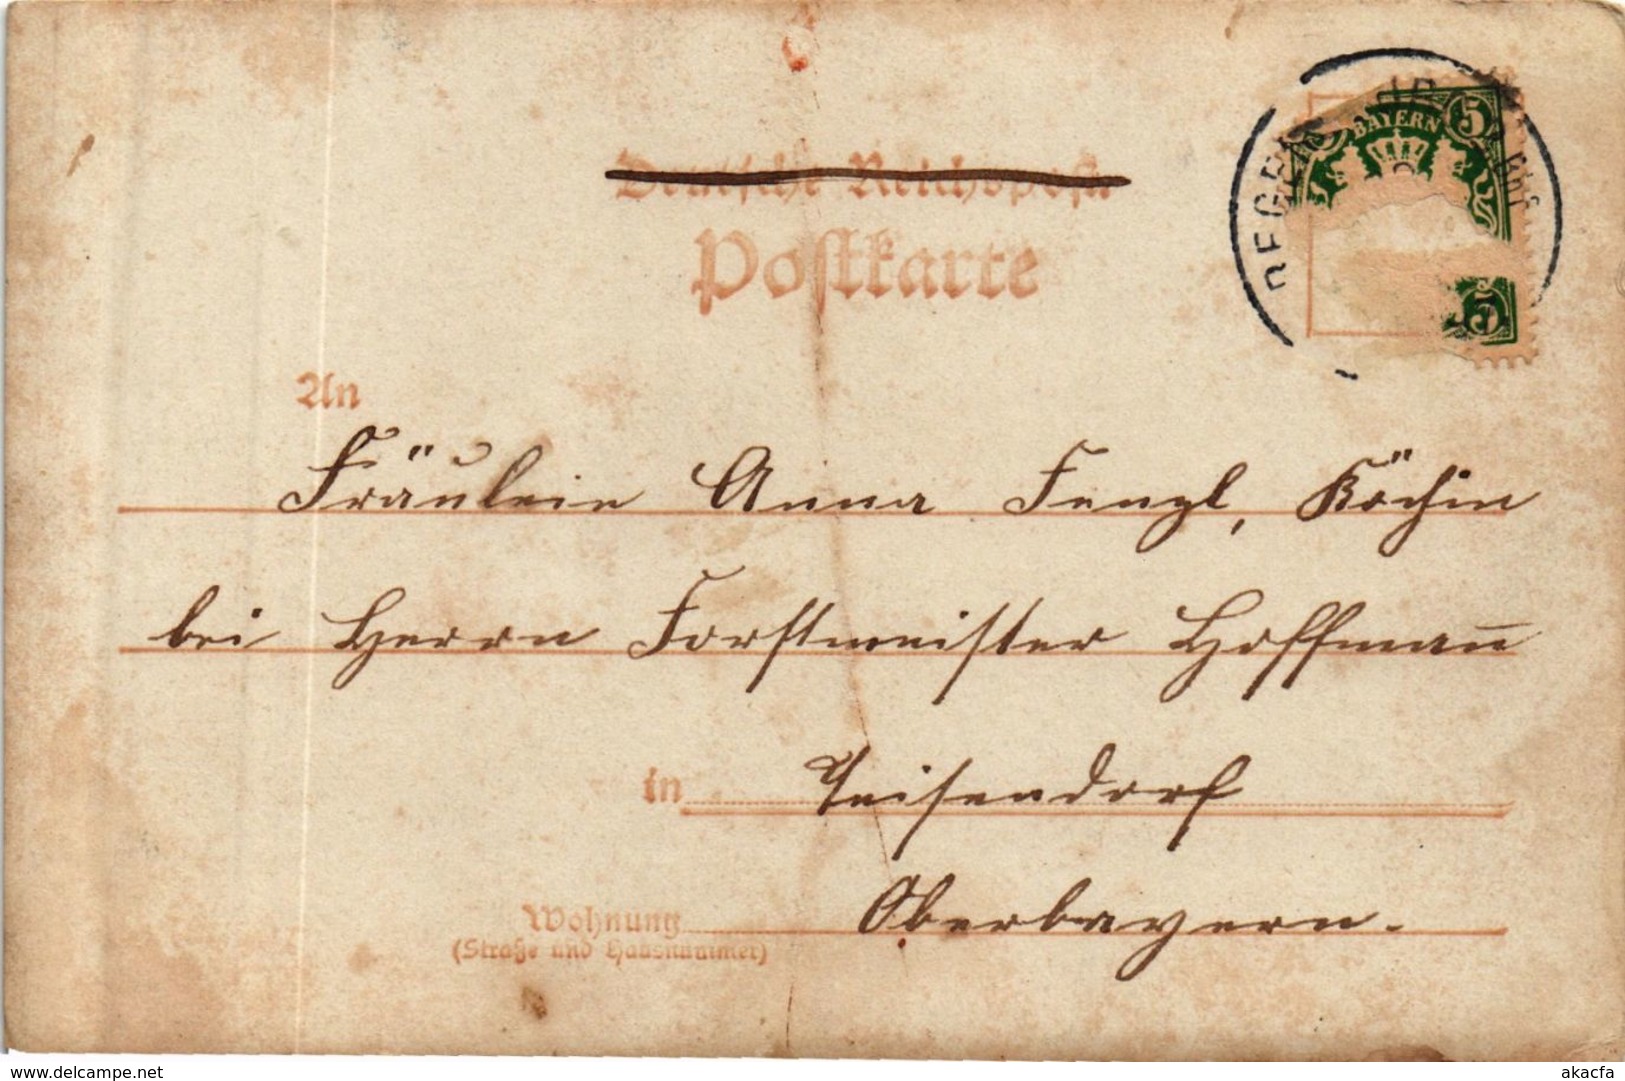 Deutsche Reichspost
Postkarte
BAYERN 5
5
REGEN
An
Fräulein Anna Fengl, Köchin
bei Herrn Forstmeister Hoffmann̄
in Teisendorf
Wohnung Oberbayern.
(Straße und Hausnummer)
delcampe.net
akacfa